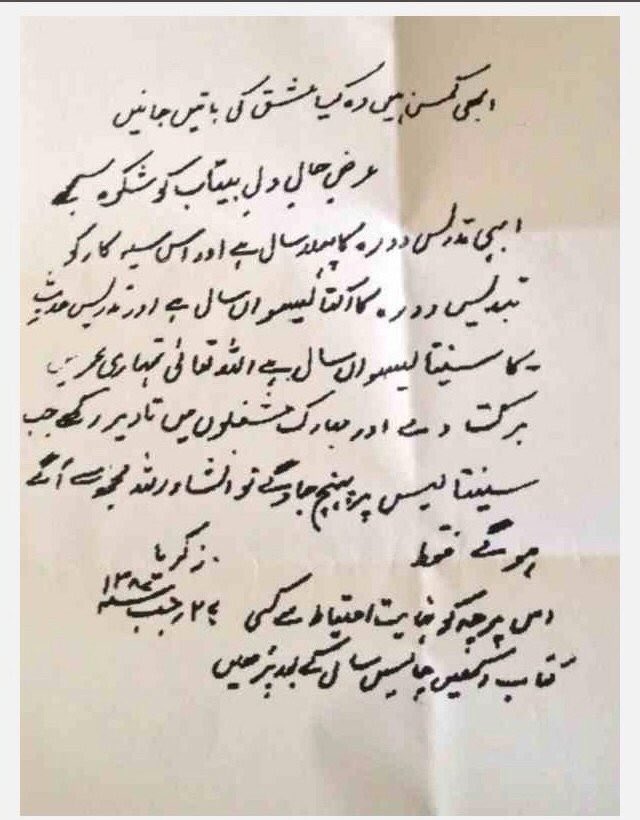 ابھی کمسن ہیں وہ کیا عشق کی باتیں جانیں
عرض حال دل بیتاب کو شکوہ سمجھے
ابھی تدریس دورہ کا پہلا سال ہے اور اس سیہ کار کو
تدریس دورہ کا اکتالیسواں سال ہے اور تدریس حدیث
کا سینتالیسواں سال ہے اللہ تعالیٰ تمہاری عمر میں
برکت دے اور مبارک مشغلوں میں تادیر رکھے جب
سینتالیس پر پہنچ جاوگے تو انشاءاللہ مجھ سے آگے
ہوگے فقط
زکریا
۲۷ رجب سنہ ۱۳۸۷
اس پرچہ کو نہایت احتیاط سے کسی
کتاب میں رکھیں چالیس سال کے بعد پڑھیں